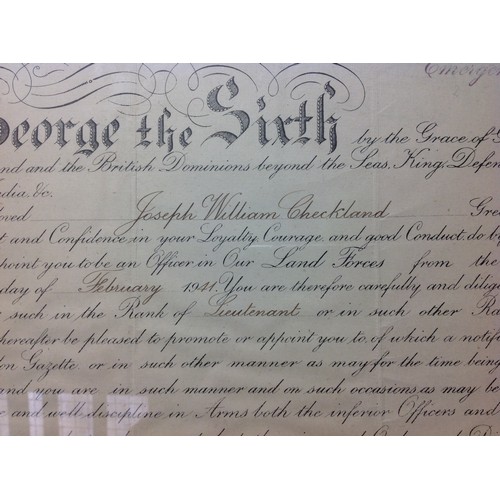 Emerge
George the Sixth by the Grace of
and and the British Dominions beyond the Seas, King, Defen
ndia, &c.
oved Joseph William Checkland Gre
t and Confidence in your Loyalty, Courage, and good Conduct, do by
point you to be an Officer in Our Land Forces from the
day of February 1941. You are therefore carefully and dilig
such in the Rank of Lieutenant or in such other Ra
hereafter be pleased to promote or appoint you to, of which a notif
don Gazette, or in such other manner as may for the time being
and you are in such manner and on such occasions as may be
e and well discipline in Arms both the inferior Officers and